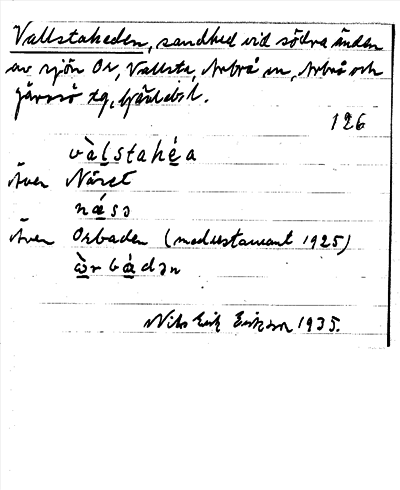 Vallstaheden, sandhed vid södra änden
av sjön Or, Vallsta, Arbrå sn, Arbrå och
Järvsö tg, Gävlebs l.
126
vàlstahéa
Även Näset
násə
Även Orbaden (med restaurant 1925)
òrbádən
Nils Erik Erikson 1935.